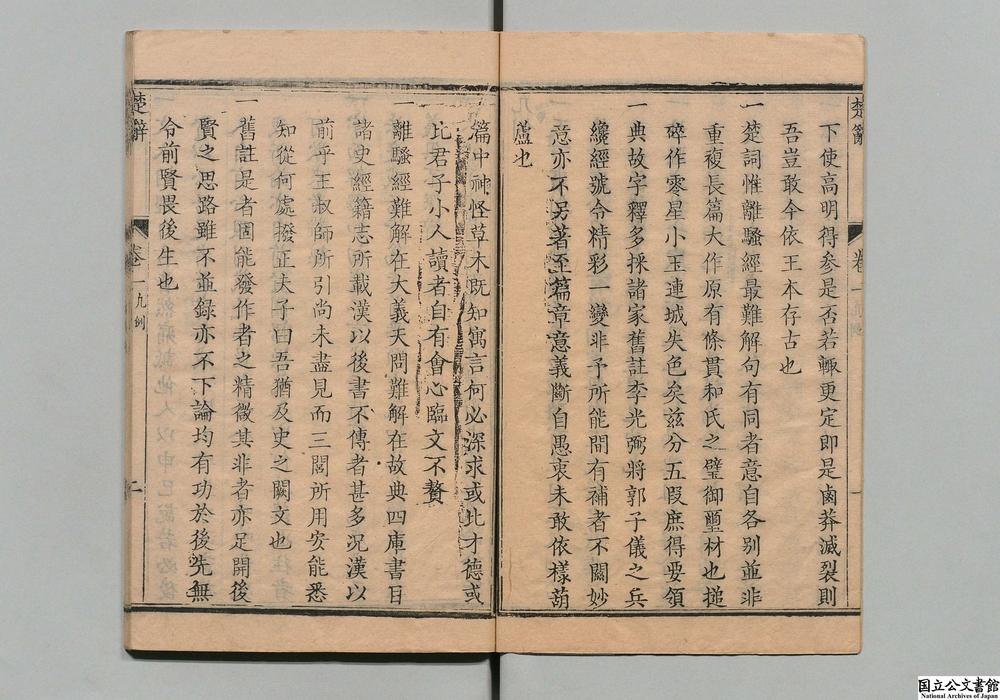 楚辭
卷一
下使高明得參是否若輙更定即是鹵莽滅裂則
吾豈敢今依王本存古也
一楚詞惟離騷經最難解句有同者意自各别並非
重複長篇大作原有條貫和氏之璧御璽材也搥
碎作零星小玉連城失色矣兹分五叚庶得要領
一典故字釋多採諸家舊註李光弼將郭子儀之兵
纔經號令精彩一變非予所能間有補者不關妙
意亦不另著至篇章意義斷自愚衷未敢依樣葫
蘆也
篇中神怪草木既知寓言何必深求或比才德或
比君子小人讀者自有會心臨文不贅
一離騷經難解在大義天問難解在故典四庫書目
諸史經籍志所載漢以後書不傳者甚多况漢以
前乎王叔師所引尚未盡見而三閭所用安能悉
知從何處撥正夫子曰吾猶及史之闕文也
一舊註是者固能發作者之精微其非者亦足開後
賢之思路雖不並録亦不下論均有功於後先無
令前賢畏後生也
楚辭
卷一九例
二
国立公文書館
National Archives of Japan